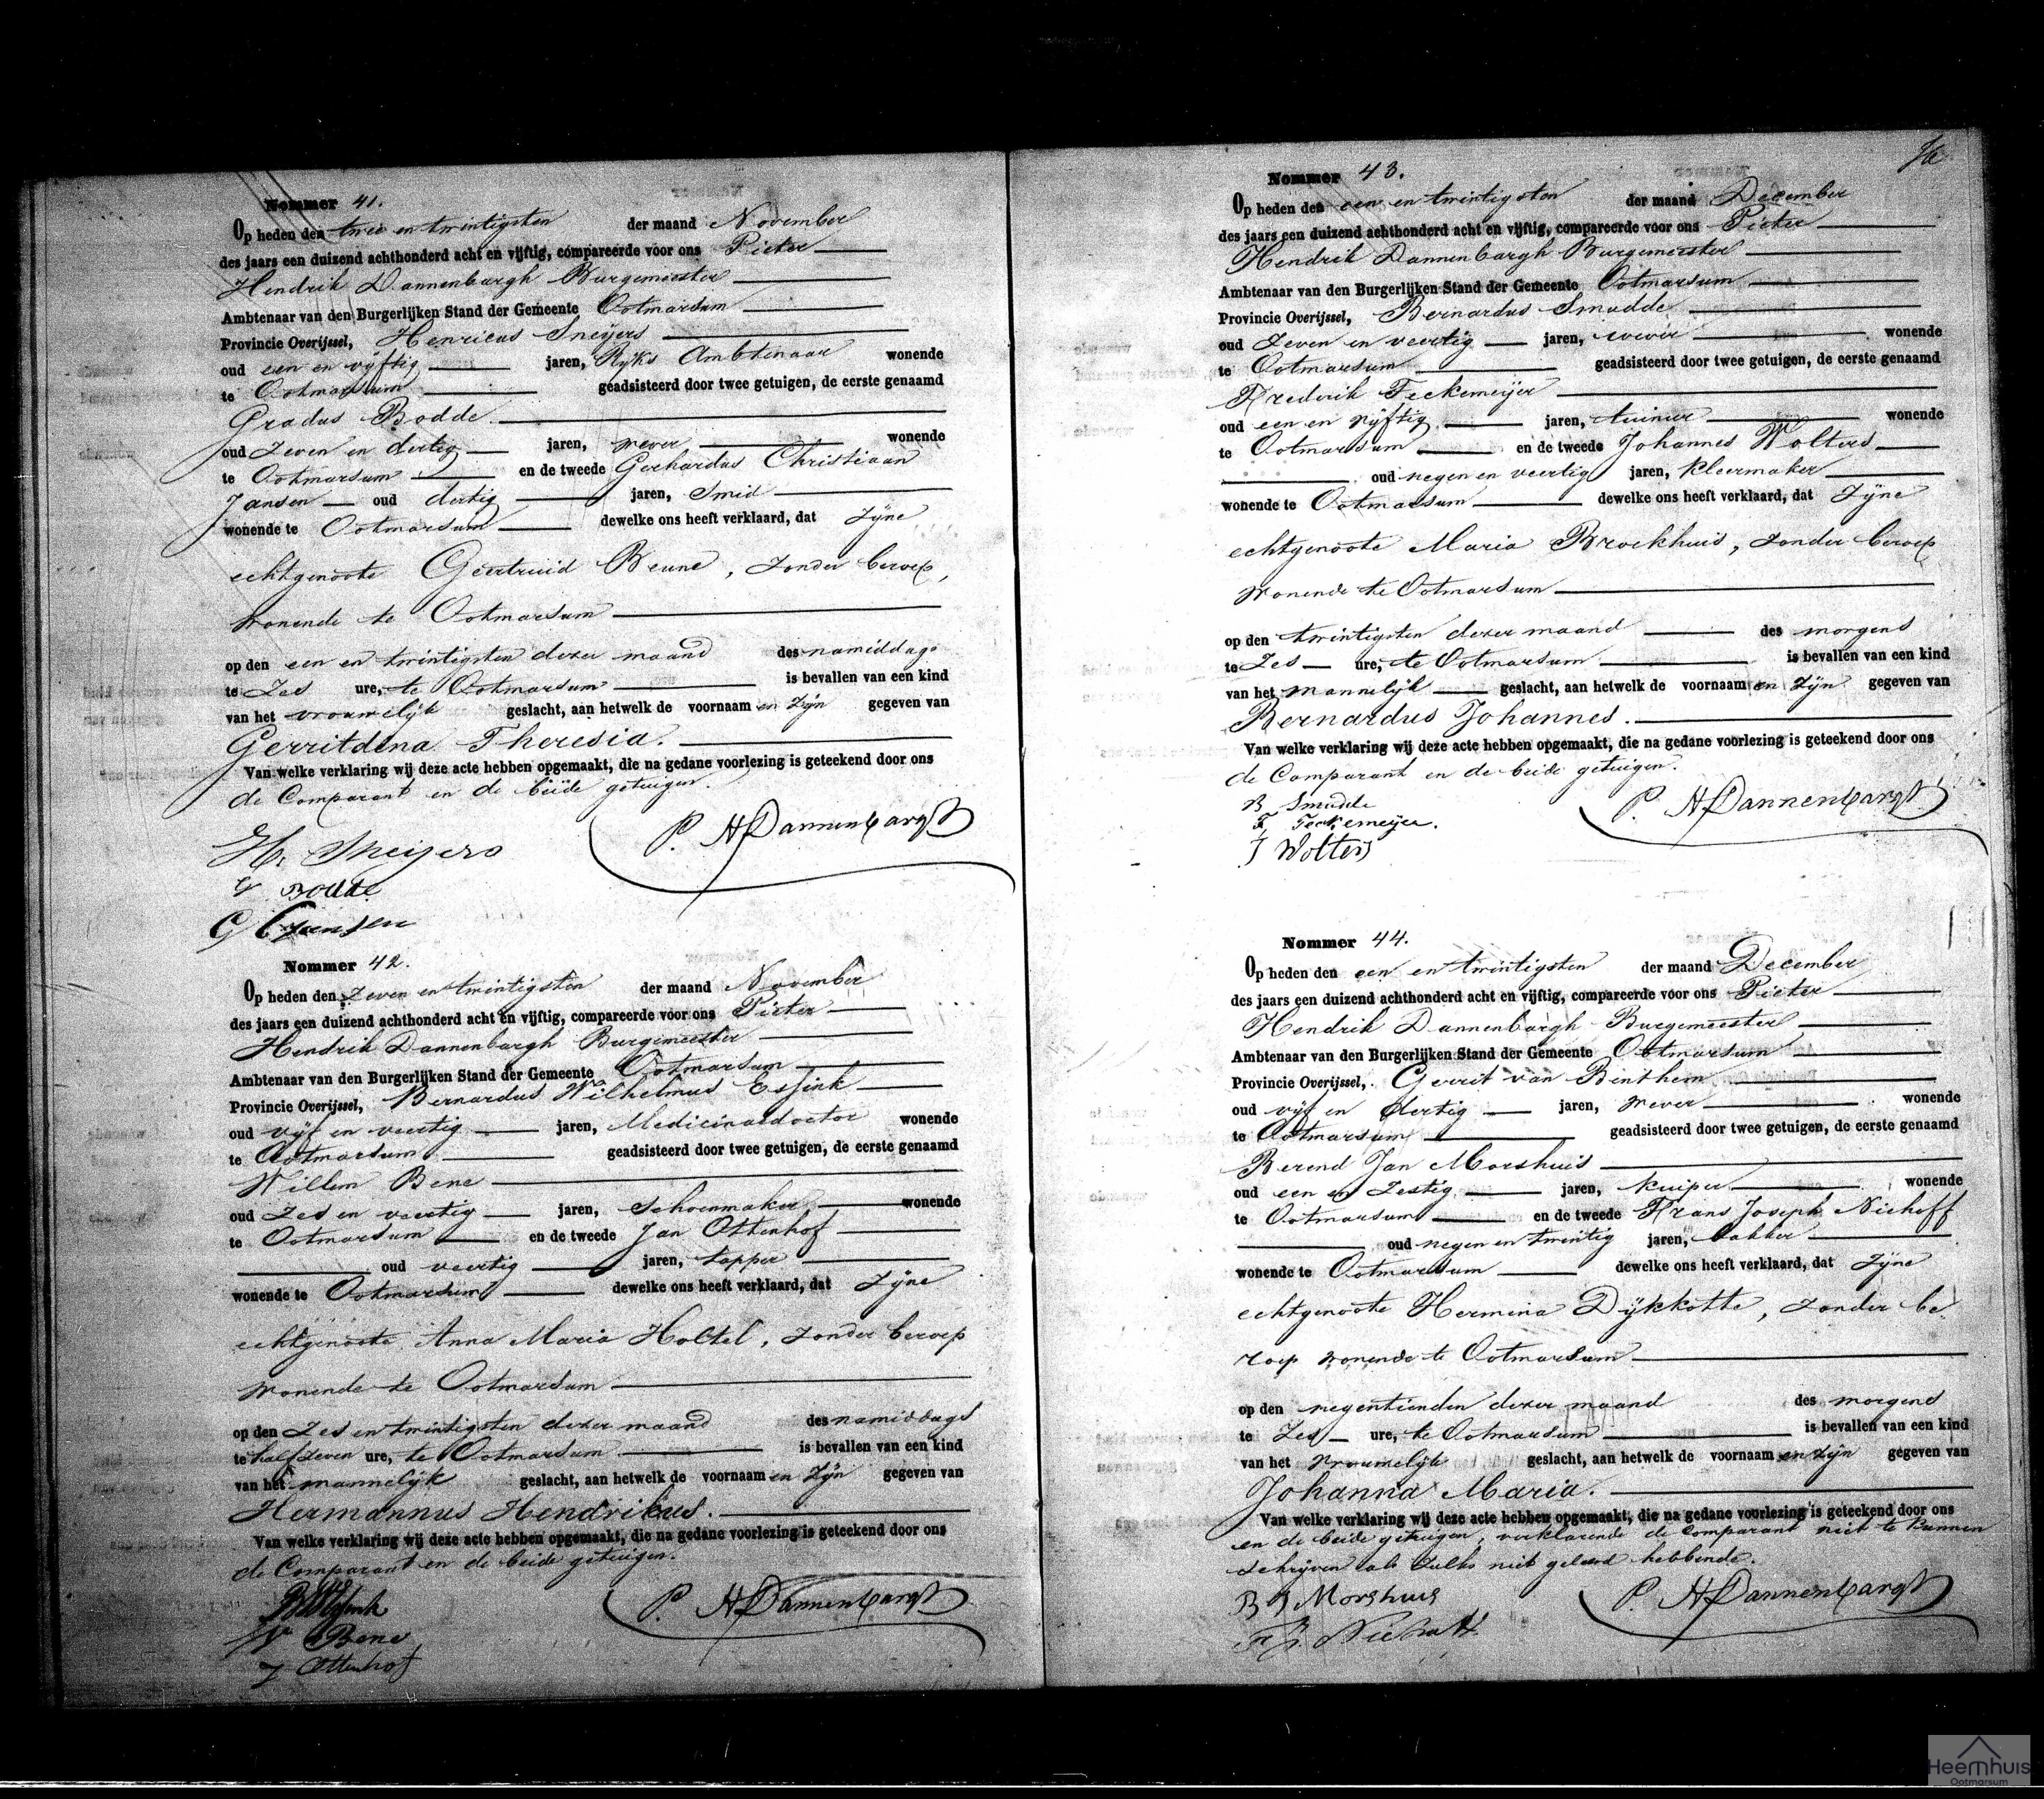 Nommer 41.
Op heden den twee en twintigsten der maand November
des jaars een duizend achthonderd acht en vijftig, compareerde voor ons Pieter
Hendrik Dannenbargh Burgemeester
Ambtenaar van den Burgerlijken Stand der Gemeente Ootmarsum
Provincie Overijssel, Henricus Sneijers
oud een en vijftig jaren, Rijks Ambtenaar wonende
te Ootmarsum geadsisteerd door twee getuigen, de eerste genaamd
Gradus Bodde
oud Zeven en dertig jaren, wever wonende
te Ootmarsum en de tweede Gerhardus Christiaan
Jansen oud dertig jaren, Smid
wonende te Ootmarsum dewelke ons heeft verklaard, dat Zijne
echtgenoote Geertruid Beune, Zonder beroep,
wonende te Ootmarsum
op den een en twintigsten dezer maand des namiddags
te Zes ure, te Ootmarsum is bevallen van een kind
van het vrouwelijk geslacht, aan hetwelk de voornaam en Zijn gegeven van
Gerritdina Theresia.
Van welke verklaring wij deze acte hebben opgemaakt, die na gedane voorlezing is geteekend door ons
de Comparant en de beide getuigen.
H. Sneijers
P. H Dannenbargh
G Bodde
G C Jansen
Nommer 42.
Op heden den Zeven en twintigsten der maand November
des jaars een duizend achthonderd acht en vijftig, compareerde voor ons Pieter
Hendrik Dannenbargh Burgemeester
Ambtenaar van den Burgerlijken Stand der Gemeente Ootmarsum
Provincie Overijssel, Bernardus Wilhelmus Essink
oud vijf en veertig jaren, Medicinaedoctor wonende
te Ootmarsum geadsisteerd door twee getuigen, de eerste genaamd
Willem Bene
oud Zes en veertig jaren, Schoenmaker wonende
te Ootmarsum en de tweede Jan Ottenhof
oud veertig jaren, tapper
wonende te Ootmarsum dewelke ons heeft verklaard, dat Zijne
echtgenoote Anna Maria Holtel, Zonder beroep
wonende te Ootmarsum
op den Zes en twintigsten dezer maand des namiddags
te half zeven ure, te Ootmarsum is bevallen van een kind
van het mannelijk geslacht, aan hetwelk de voornaam en Zijn gegeven van
Hermannus Hendrikus.
Van welke verklaring wij deze acte hebben opgemaakt, die na gedane voorlezing is geteekend door ons
de Comparant en de beide getuigen.
P. H Dannenbargh
W Bene
J Ottenhof
Nommer 43.
Op heden den een en twintigsten der maand December
des jaars een duizend achthonderd acht en vijftig, compareerde voor ons Pieter
Hendrik Dannenbargh Burgemeester
Ambtenaar van den Burgerlijken Stand der Gemeente Ootmarsum
Provincie Overijssel, Bernardus Smudde
oud Zeven en veertig jaren, wever wonende
te Ootmarsum geadsisteerd door twee getuigen, de eerste genaamd
Frederik Teckemeijer
oud een en vijftig jaren, tuinier wonende
te Ootmarsum en de tweede Johannes Wolters
oud negen en veertig jaren, kleermaker
wonende te Ootmarsum dewelke ons heeft verklaard, dat Zijne
echtgenoote Maria Broekhuis, Zonder beroep
wonende te Ootmarsum
op den twintigsten dezer maand des morgens
te Zes ure, te Ootmarsum is bevallen van een kind
van het mannelijk geslacht, aan hetwelk de voornaam en Zijn gegeven van
Bernardus Johannes.
Van welke verklaring wij deze acte hebben opgemaakt, die na gedane voorlezing is geteekend door ons
de Comparant en de beide getuigen.
B Smudde
P. H Dannenbargh
F Teckemeijer.
J Wolters
Nommer 44.
Op heden den een en twintigsten der maand December
des jaars een duizend achthonderd acht en vijftig, compareerde voor ons Pieter
Hendrik Dannenbargh Burgemeester
Ambtenaar van den Burgerlijken Stand der Gemeente Ootmarsum
Provincie Overijssel, Gerrit van Binthem
oud vijf en dertig jaren, wever wonende
te Ootmarsum geadsisteerd door twee getuigen, de eerste genaamd
Berend Jan Morshuis
oud een en Zestig jaren, Kuiper wonende
te Ootmarsum en de tweede Frans Joseph Niehoff
oud negen en twintig jaren, bakker
wonende te Ootmarsum dewelke ons heeft verklaard, dat Zijne
echtgenoote Hermina Dijkkotte, Zonder be
roep wonende te Ootmarsum
op den negentienden dezer maand des morgens
te Zes ure, te Ootmarsum is bevallen van een kind
van het vrouwelijk geslacht, aan hetwelk de voornaam en Zijn gegeven van
Johanna Maria.
Van welke verklaring wij deze acte hebben opgemaakt, die na gedane voorlezing is geteekend door ons
en de beide getuigen, verklarende de Comparant niet te kunnen
schrijven als zulks niet geleerd hebbende.
B J Morshuis
P. H Dannenbargh
F J. Niehoff
Heemhuis
Ootmarsum